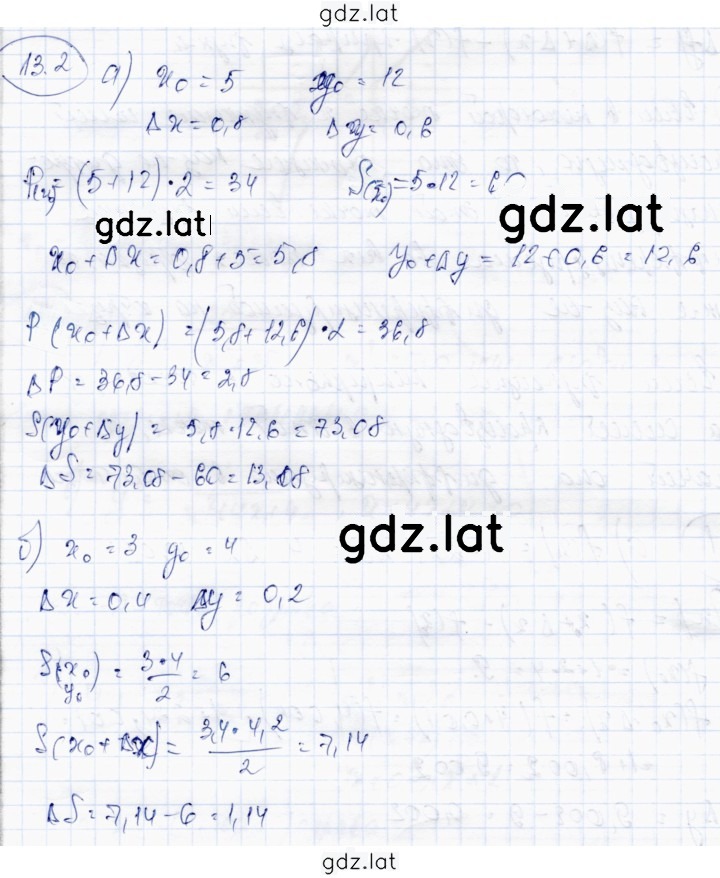 gdz.lat
13.2 а) x₀ = 5 y₀ = 12
Δx = 0,8 Δy = 0,6
= (5+12)·2 = 34 = 5·12 = 60
gdz.lat gdz.lat
x₀+Δx = 0,8+5 = 5,8 y₀+Δy = 12+0,6 = 12,6
P(x₀+Δx) = (5,8+12,6)·2 = 36,8
ΔP = 36,8-34 = 2,8
S(y₀+Δy) = 5,8·12,6 = 73,08
ΔS = 73,08-60 = 13,08
gdz.lat
б) x₀ = 3 y₀ = 4
Δx = 0,4 Δy = 0,2
S(x₀ y₀) = 3·4/2 = 6
S(x₀+Δx) = 3,4·4,2/2 = 7,14
ΔS = 7,14-6 = 1,14
gdz.lat